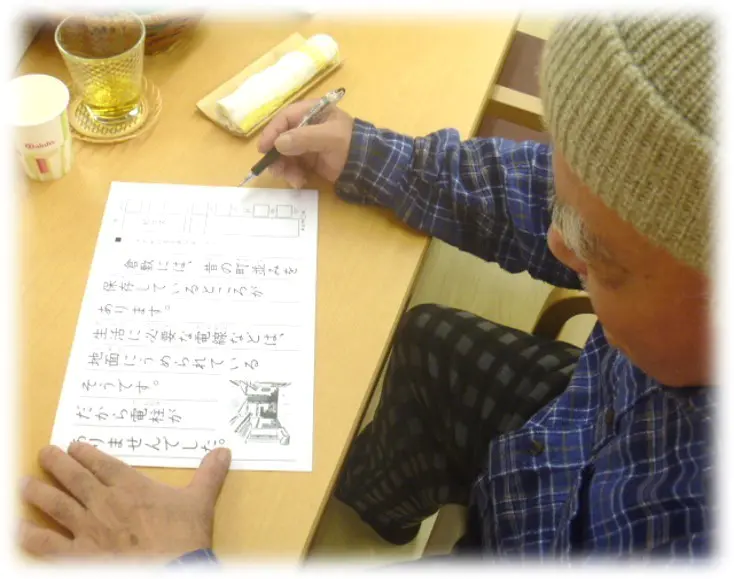 倉敷には、昔の町並みを
保存しているところが
あります。
生活に必要な電線などは、
地面にうめられている
そうです。
だから電柱が
ありませんでした。